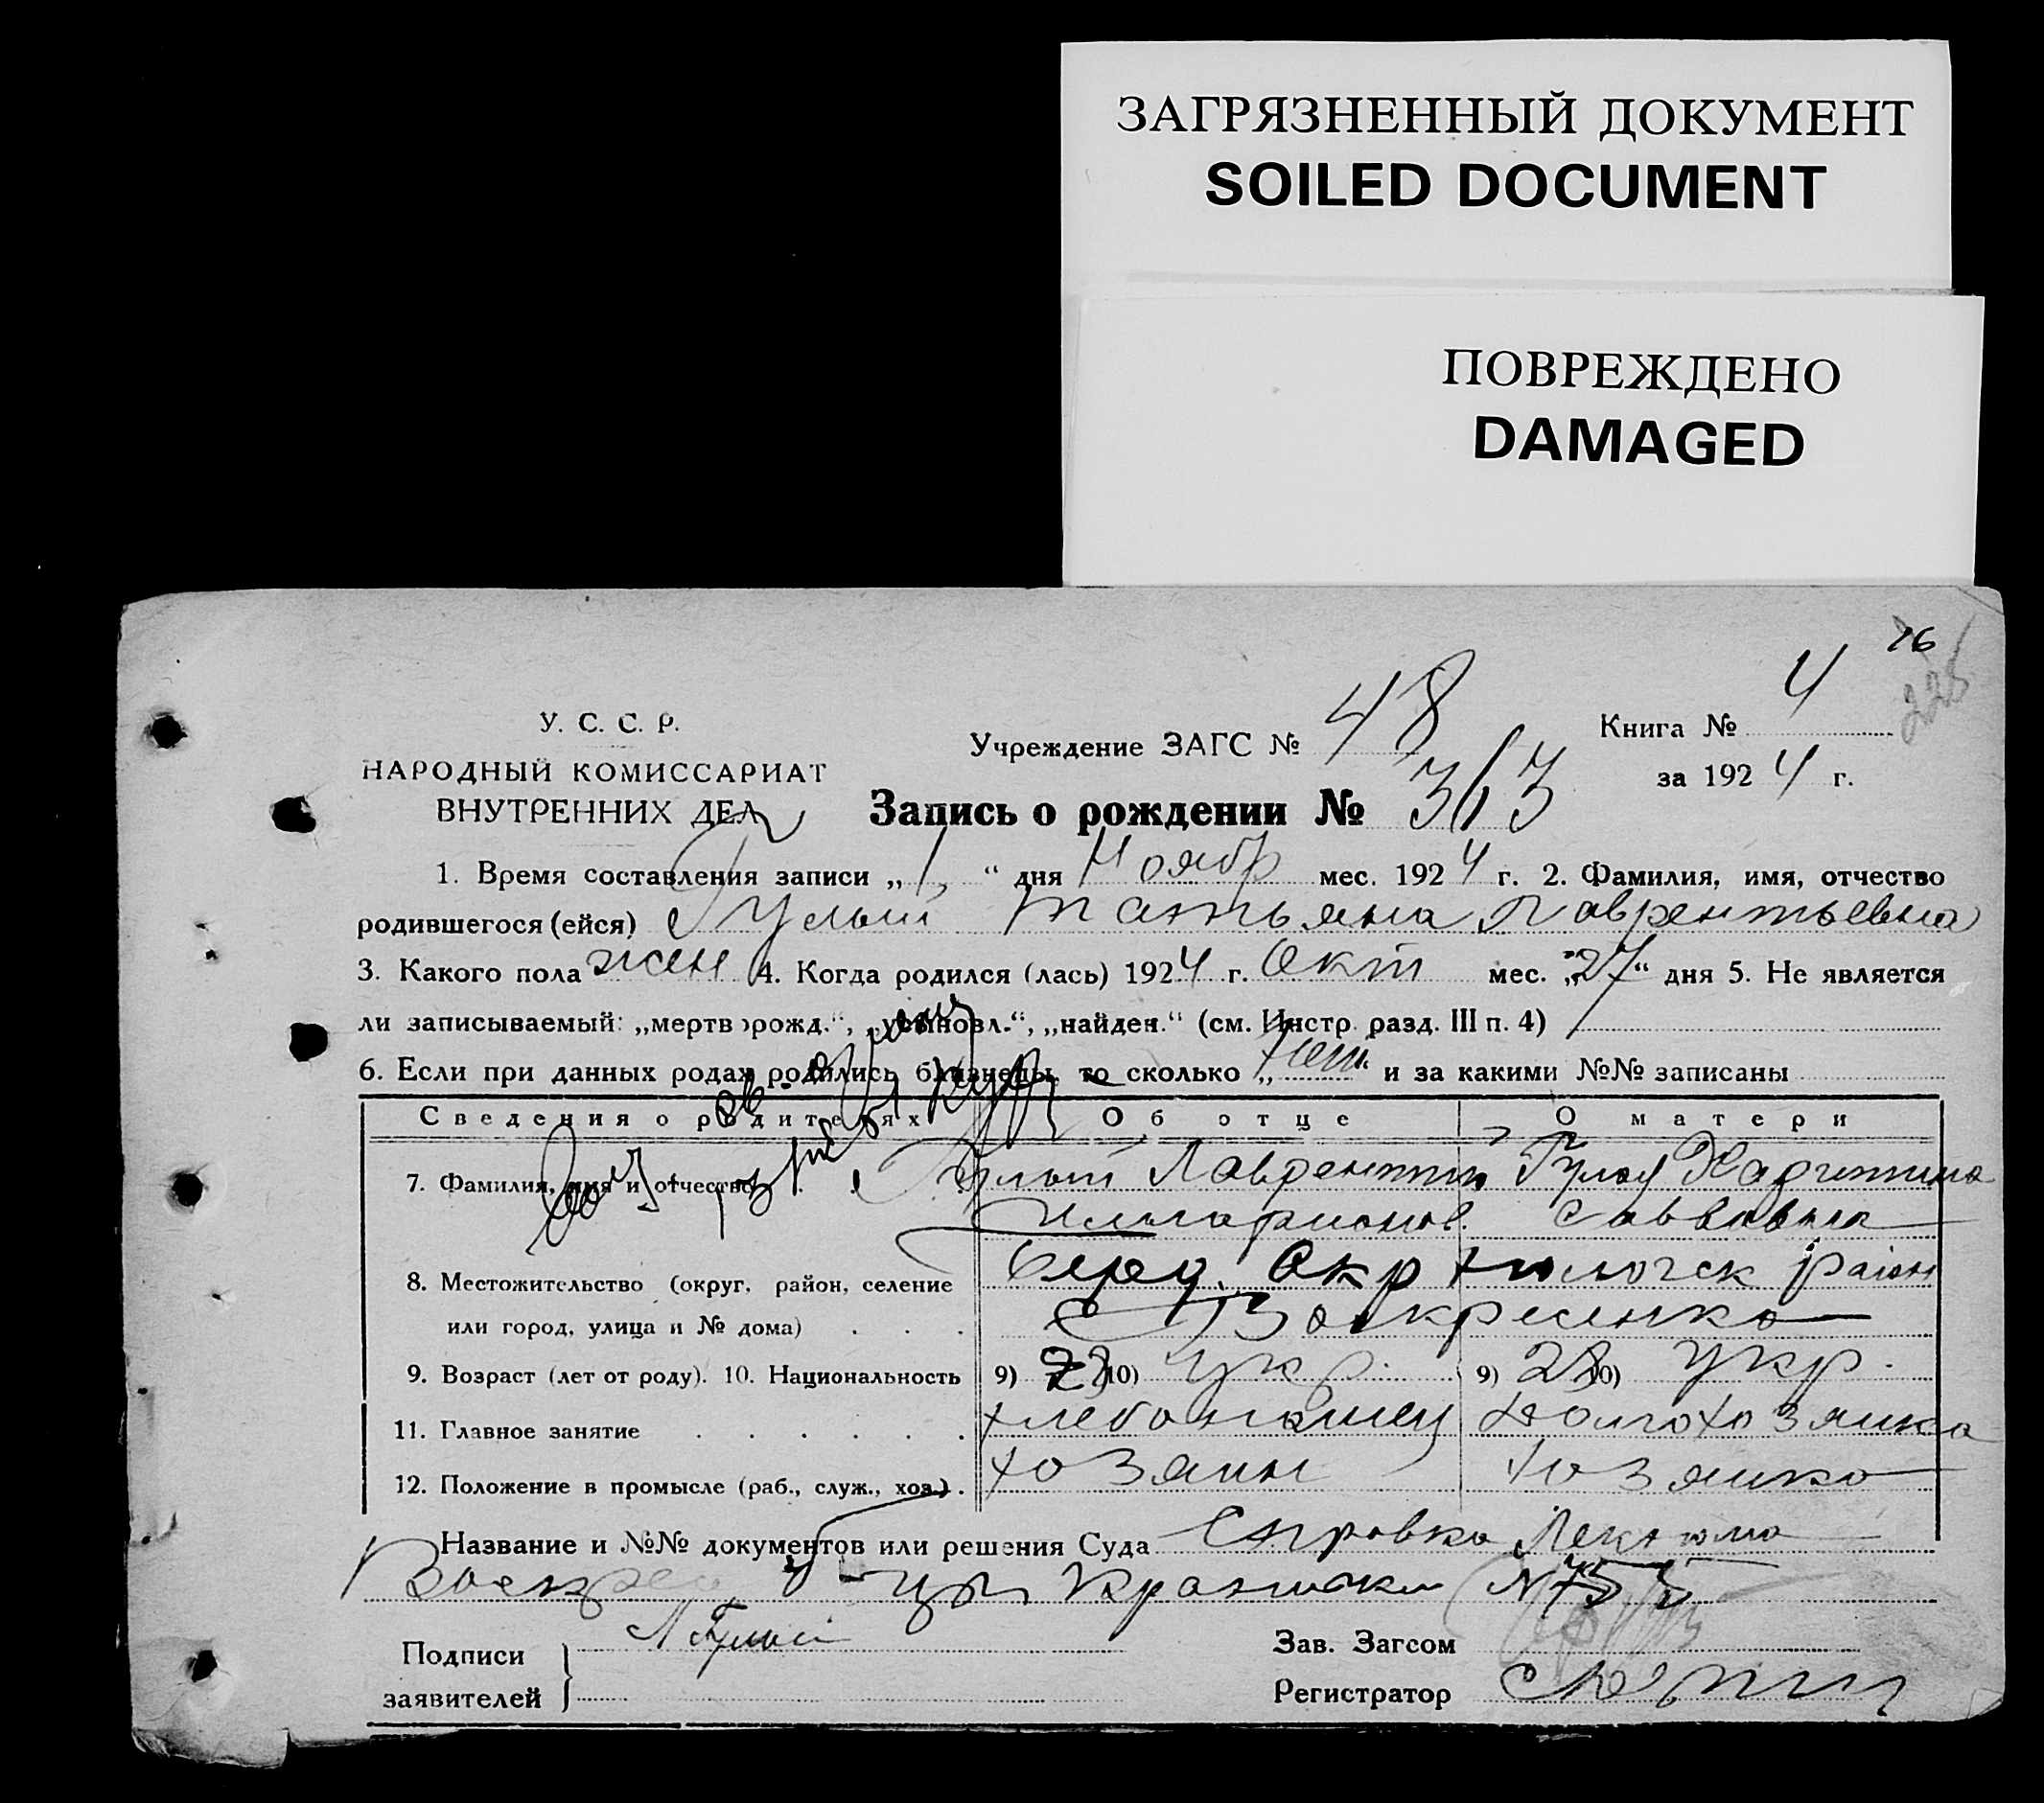 ЗАГРЯЗНЕННЫЙ ДОКУМЕНТ
SOILED DOCUMENT
ПОВРЕЖДЕНО
DAMAGED
76
225
У. С. С. Р.
НАРОДНЫЙ КОМИССАРИАТ
ВНУТРЕННИХ ДЕЛ
Учреждение ЗАГС № 48
Книга № 4
за 1924 г.
Запись о рождении № 313
1. Время составления записи „1“ дня Ноябр мес. 1924 г. 2. Фамилия, имя, отчество
родившегося (ейся) Гулый Татьяна Лаврентьевна
3. Какого пола жен 4. Когда родился (лась) 1924 г. Окт мес. „27“ дня 5. Не является
ли записываемый: „мертворожд.“, „усыновл.“, „найден.“ (см. Инстр. разд. III п. 4)
6. Если при данных родах родились близнецы, то сколько „нет“ и за какими №№ записаны
Сведения о родителях Об отце О матери
7. Фамилия, имя и отчество Гулый Лаврентий Гулая Харитина
Илларионов. Саввовна
8. Местожительство (округ, район, селение Окр район
или город, улица и № дома) С Воскресенка
9. Возраст (лет от роду). 10. Национальность 9) 10) укр. 9) 28 10) Укр.
11. Главное занятие хлебопашец домохозяйка
12. Положение в промысле (раб., служ., хоз.) хозяин хозяйка
Название и №№ документов или решения Суда Справка
№ 755
Подписи
заявителей
Л Гулый
Зав. Загсом
Регистратор